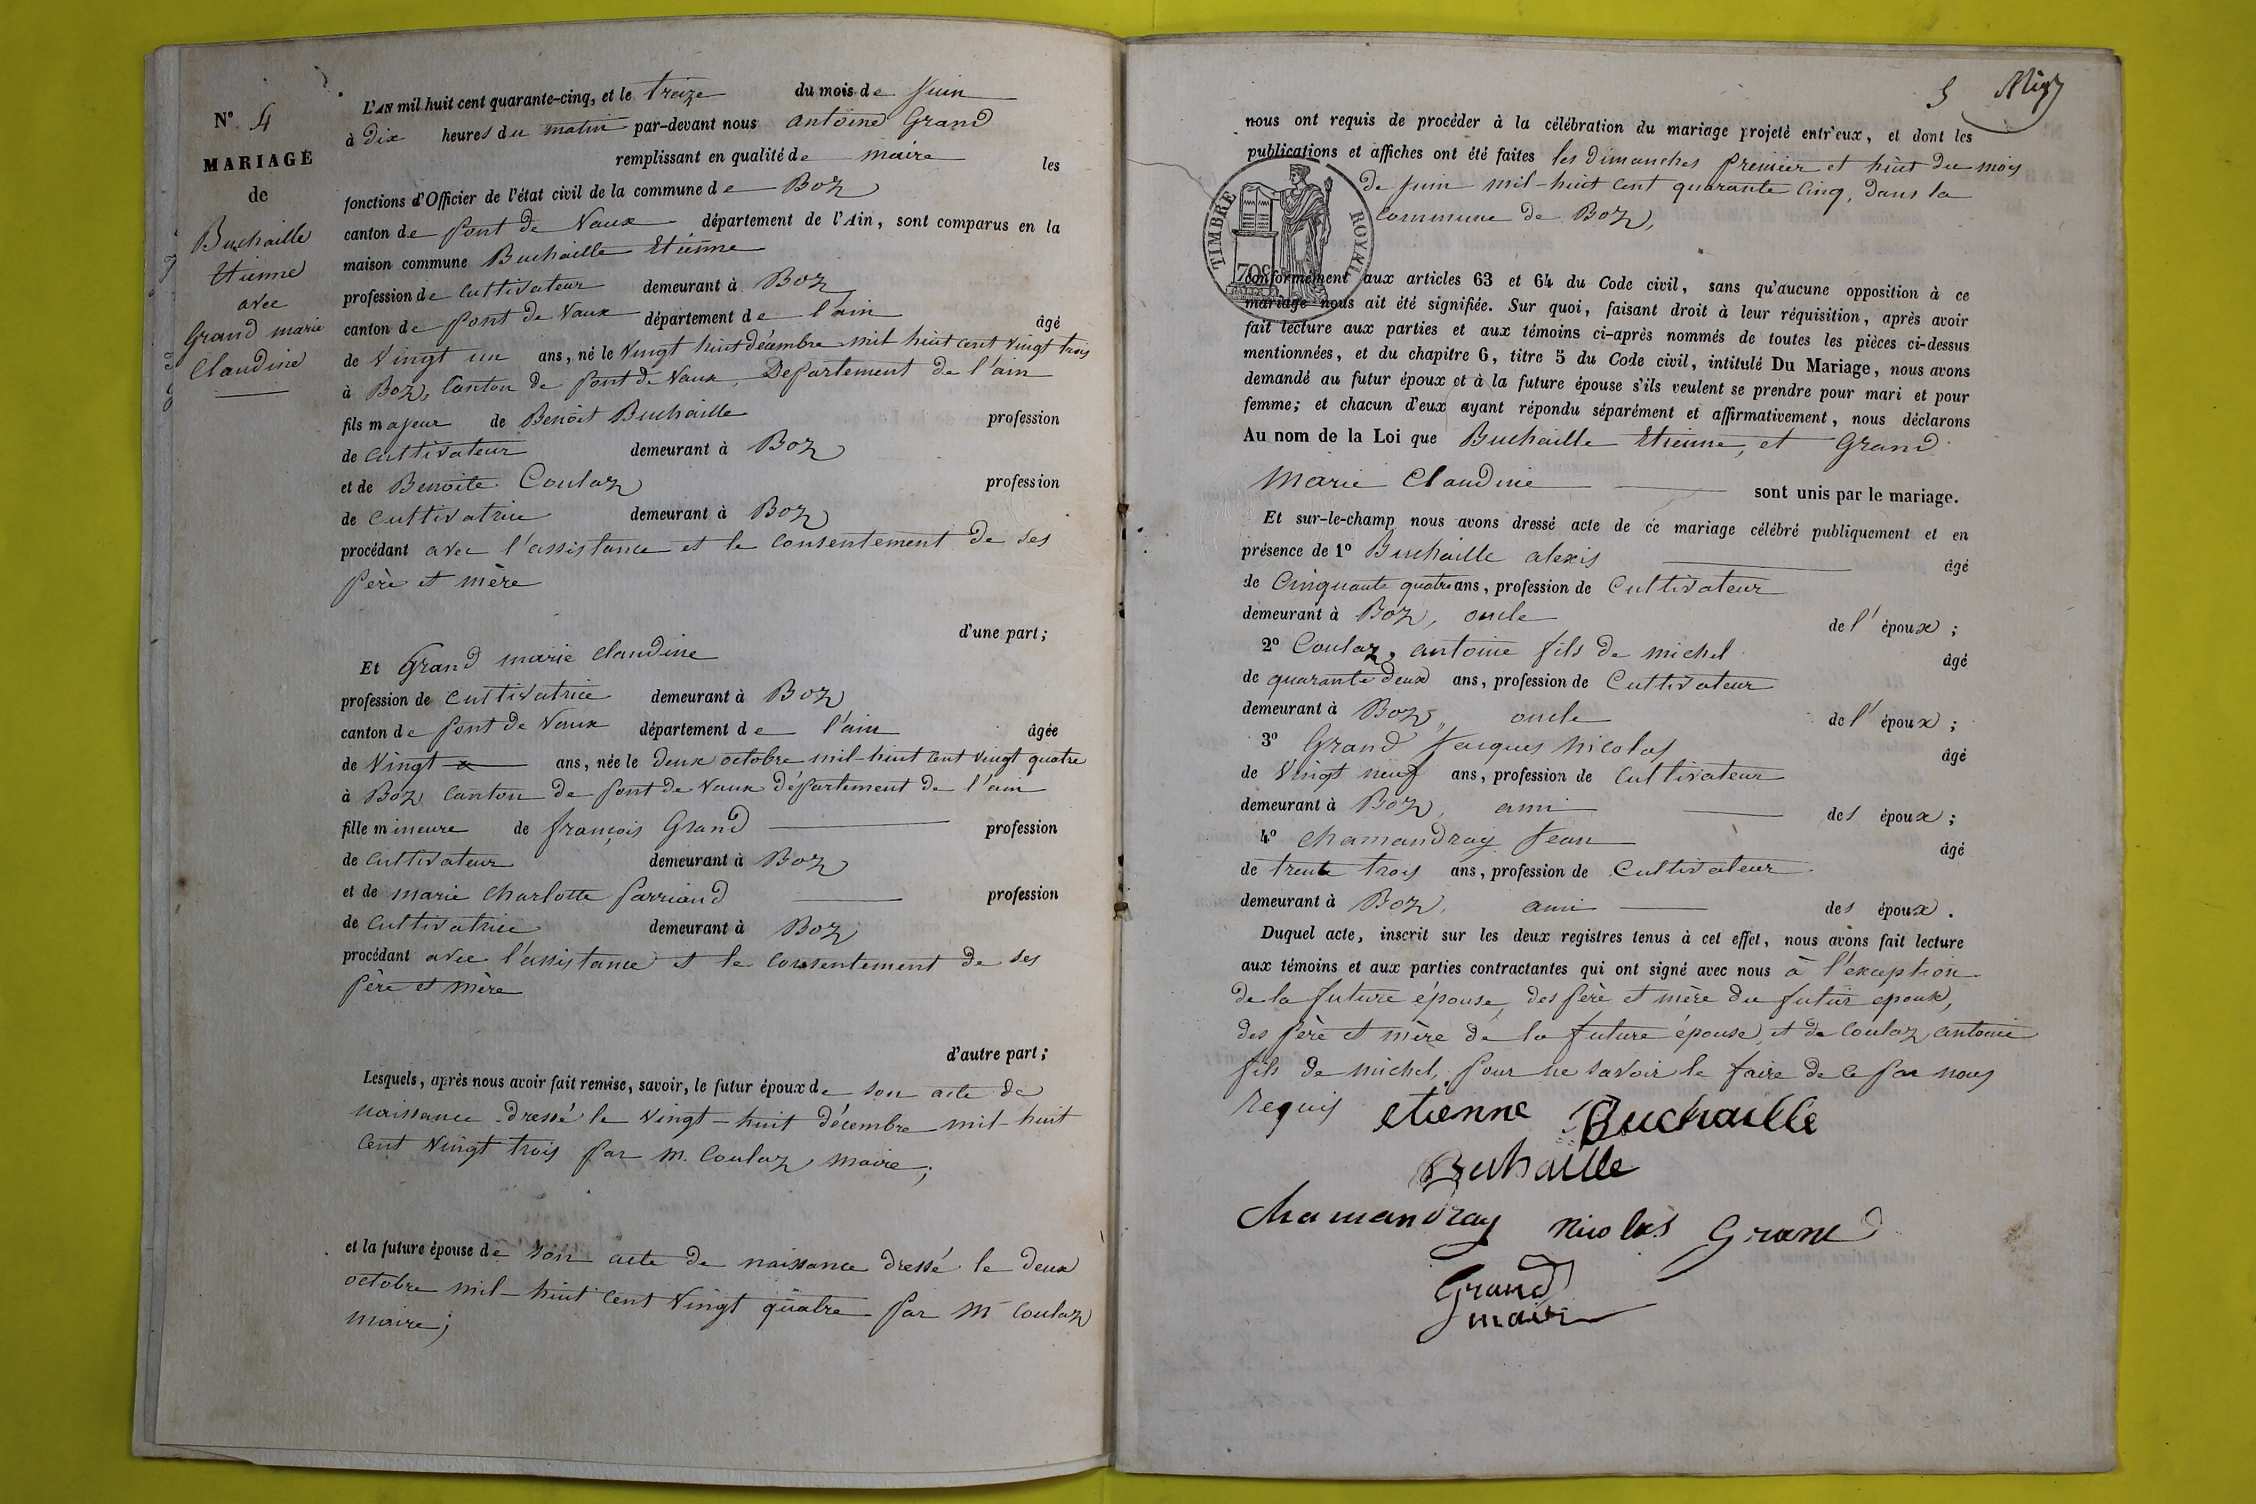 N° 4
MARIAGE
de
Buchaille
Etienne
avec
Grand marie
Claudine
L'AN mil huit cent quarante-cinq, et le treize du mois de Juin
à Dix heures du matin par-devant nous antoine Grand
remplissant en qualité de maire les
fonctions d'Officier de l'état civil de la commune de Boz
canton de Pont de Vaux département de l'Ain, sont comparus en la
maison commune Buchaille Etienne
profession de Cultivateur demeurant à Boz
canton de Pont de Vaux département de l'ain âgé
de Vingt un ans, né le Vingt huit décembre mil huit cent vingt trois
à Boz, Canton de Pont de Vaux, Departement de l'ain
fils majeur de Benoit Buchaille profession
de Cultivateur demeurant à Boz
et de Benoite Coulaz profession
de Cultivatrice demeurant à Boz
procédant avec l'assistance et le consentement de ses
Père et mère
d'une part;
Et Grand marie Claudine
profession de Cultivatrice demeurant à Boz
canton de Pont de Vaux département de l'ain âgée
de Vingt ans, née le deux octobre mil-huit cent vingt quatre
à Boz Canton de Pont de Vaux département de l'ain
fille mineure de françois Grand profession
de Cultivateur demeurant à Boz
et de marie Charlotte Parriaud profession
de Cultivatrice demeurant à Boz
procédant avec l'assistance et le consentement de ses
Père et mère
d'autre part;
Lesquels, après nous avoir fait remise, savoir, le futur époux de son acte de
naissance dressé le vingt-huit décembre mil-huit
cent vingt trois par m. Coulaz maire;
et la future épouse de son acte de naissance dressé le deux
octobre mil-huit cent vingt quatre par m Coulaz
maire;
5
nous ont requis de procéder à la célébration du mariage projeté entr'eux, et dont les
publications et affiches ont été faites les dimanches premier et huit du mois
de juin mil-huit cent quarante cinq, dans la
commune de Boz,
TIMBRE ROYAL
70c
conformément aux articles 63 et 64 du Code civil, sans qu'aucune opposition à ce
mariage nous ait été signifiée. Sur quoi, faisant droit à leur réquisition, après avoir
fait lecture aux parties et aux témoins ci-après nommés de toutes les pièces ci-dessus
mentionnées, et du chapitre 6, titre 5 du Code civil, intitulé Du Mariage, nous avons
demandé au futur époux et à la future épouse s'ils veulent se prendre pour mari et pour
femme; et chacun d'eux ayant répondu séparément et affirmativement, nous déclarons
Au nom de la Loi que Buchaille Etienne, et Grand
Marie Claudine sont unis par le mariage.
Et sur-le-champ nous avons dressé acte de ce mariage célébré publiquement et en
présence de 1° Buchaille alexis âgé
de Cinquante quatre ans, profession de Cultivateur
demeurant à Boz, oncle de l'époux;
2° Coulaz, antoine fils de michel âgé
de quarante deux ans, profession de Cultivateur
demeurant à Boz, oncle de l'époux;
3° Grand Jacques Nicolas âgé
de Vingt neuf ans, profession de Cultivateur
demeurant à Boz, ami des époux;
4° Chamandray Jean âgé
de trente trois ans, profession de Cultivateur
demeurant à Boz, ami des époux.
Duquel acte, inscrit sur les deux registres tenus à cet effet, nous avons fait lecture
aux témoins et aux parties contractantes qui ont signé avec nous à l'exception
de la future épouse, des père et mère du futur epoux,
des père et mère de la future épouse, et de Coulaz antoine
fils de michel, pour ne savoir le faire de ce par nous
requis
etienne Buchaille
Buchaille
Chamandray Nicolas Grand
Grand
maire